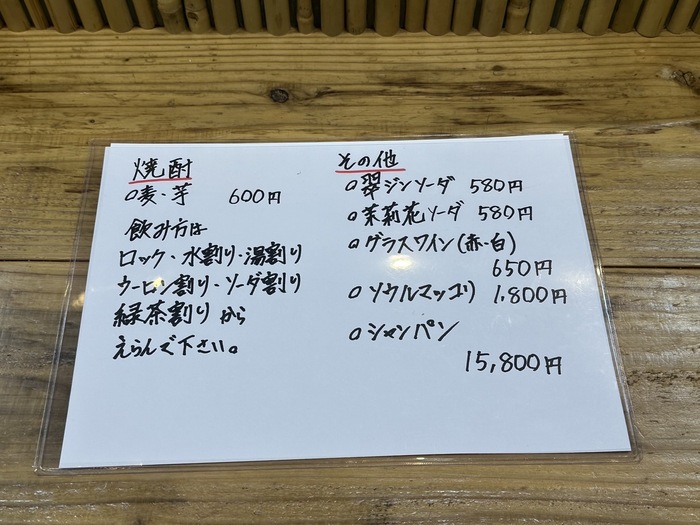 焼酎
○麦・芋 600円
飲み方は
ロック・水割り・湯割り
ウーロン割り・ソーダ割り
緑茶割りから
えらんで下さい。
その他
○翠ジンソーダ 580円
○茉莉花ソーダ 580円
○グラスワイン(赤・白)
650円
○ソウルマッコリ 1,800円
○シャンパン
15,800円